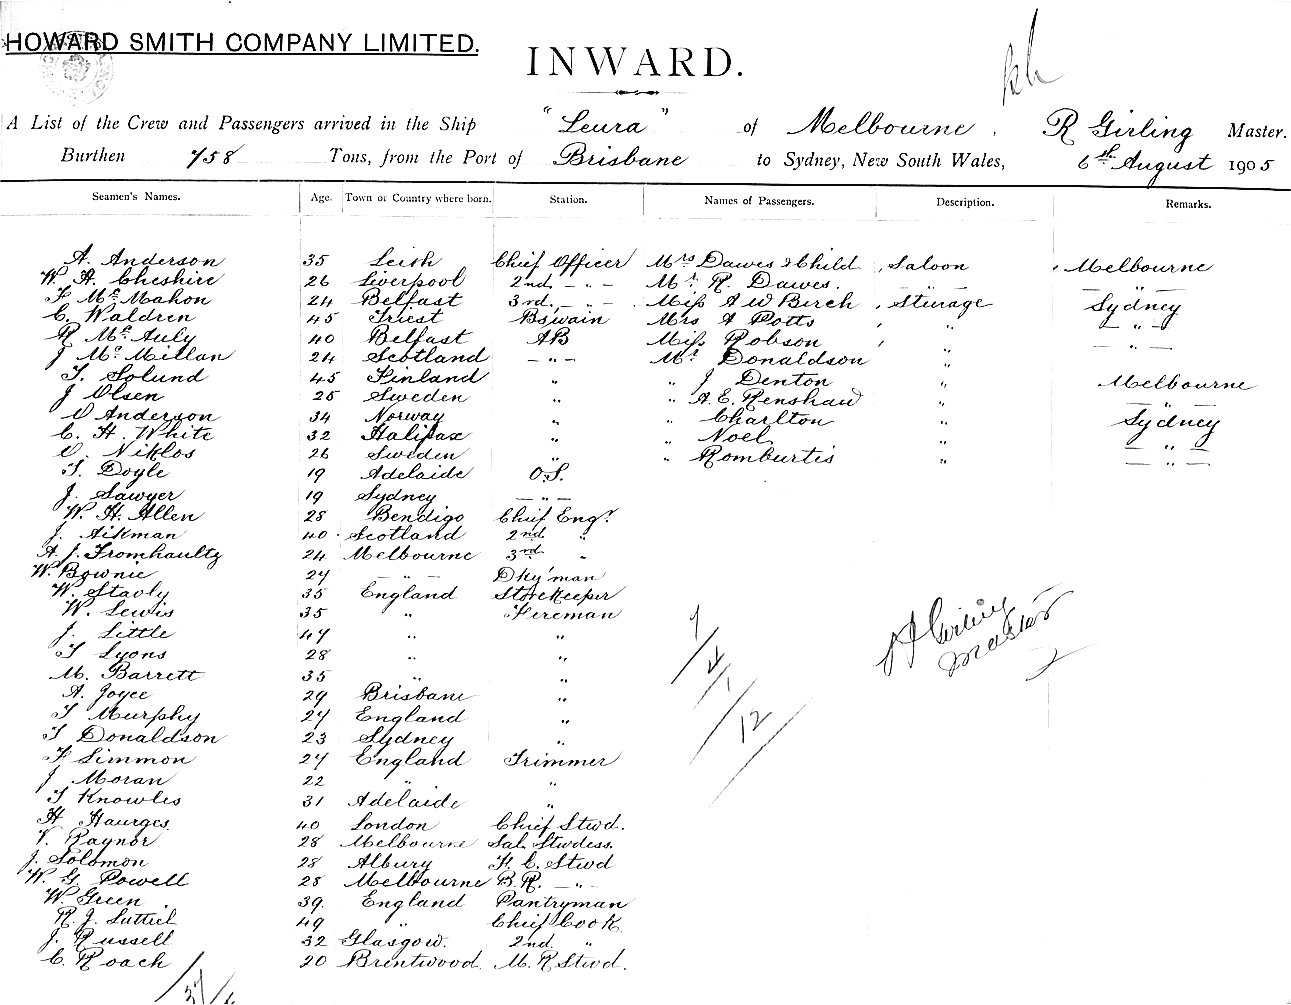 HOWARD SMITH COMPANY LIMITED.
INWARD.
A List of the Crew and Passengers arrived in the Ship "Leura" of Melbourne. R Girling Master.
Burthen 758 Tons, from the Port of Brisbane to Sydney, New South Wales, 6th August 1905
Seamen's Names. Age. Town or Country where born. Station. Names of Passengers. Description. Remarks.
A. Anderson 35 Leith Chief Officer Mrs Dawes & Child Saloon Melbourne
W. H. Cheshire 26 Liverpool 2nd - " - Mr. R. Dawes. - " - - " -
F McMahon 24 Belfast 3rd. - " - Miss A W Birch Steerage Sydney
C. Waldren 45 Triest Bswain Mrs A Potts " - " -
R McAuly 40 Belfast AB Miss Robson " - " -
J McMillan 24 Scotland - " - Mr Donaldson "
T. Solund 45 Finland " " J Denton " Melbourne
J Olsen 25 Sweden " " A. E. Renshaw " - " -
O Anderson 34 Norway " " Charlton " Sydney
C. H. White 32 Halifax " " Noel " - " -
O. Niklos 26 Sweden " " Romburtis " - " -
T. Doyle 19 Adelaide O.S.
J. Sawyer 19 Sydney - " -
W. H. Allen 28 Bendigo Chief Engr.
J. Aikman 40 Scotland 2nd "
A. J. Fromhaultz 24 Melbourne 3rd "
W. Bownie 27 - " - Dky'man
W. Stavly 35 England Storekeeper
W. Lewis 35 " Fireman
J. Little 47 " "
T Lyons 28 " "
M. Barrett 35 " "
A. Joyce 29 Brisbane "
T Murphy 27 England "
T Donaldson 23 Sydney "
F Simmon 27 England Trimmer
J Moran 22 " "
T Knowles 31 Adelaide "
H Haurges 40 London Chief Stwd.
V. Raynor 28 Melbourne Sal. Stwdess.
J. Solomon 28 Albury F. C. Stwd
W. G Powell 28 Melbourne B.R. - " -
W. Green 39. England Pantryman
R. J. Luttiel 49 " Chief Cook
J. Russell 32 Glasgow. 2nd. "
C. Roach 20 Brentwood. M. R Stwd.
7/4/1/12
Girling
Master
37